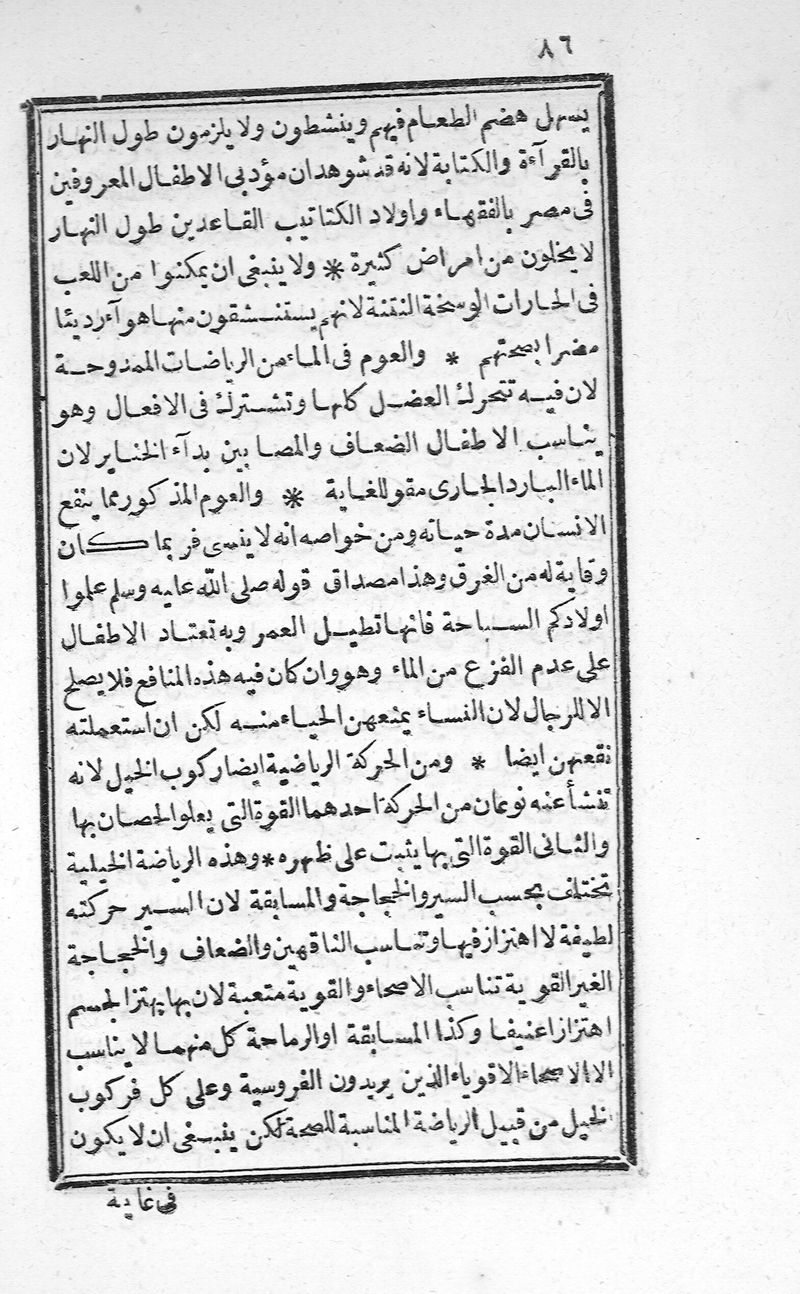 ٨٦
يسهل هضم الطعام فيهم وينشطون ولا يلزمون طول النهار
بالقرآءة والكتابة لانه قد شوهد ان مؤدبى الاطفال المعروفين
فى مصر بالفقهاء واولاد الكتاتيب القاعدين طول النهار
لا يخلون من امراض كثيرة * ولا ينبغى ان يمكنوا من اللعب
فى الحارات الوسخة النتنة لانهم يستنشقون منها هوآء رديئا
مضرا بصحتهم * والعوم فى الماء من الرياضات الممدوحة
لان فيه تتحرك العضل كلها وتشترك فى الافعال وهو
يناسب الاطفال الضعاف والمصابين بدآء الخنايز لان
الماء البارد الجارى مقو للغاية * والعوم المذكور مما ينفع
الانسان مدة حياته ومن خواصه انه لا ينسى فربما كان
وقاية له من الغرق وهذا مصداق قوله صلى الله عليه وسلم علموا
اولادكم السباحة فانها تطيل العمر وبه تعتاد الاطفال
على عدم الفزع من الماء وهو وان كان فيه هذه المنافع فلا يصلح
الا للرجال لان النساء يمنعهن الحياء منه لكن ان استعملته
نفعهن ايضا * ومن الحركة الرياضية ايضا ركوب الخيل لانه
تنشأ عنه نوعان من الحركة احدهما القوة التى يعلو الحصان بها
والثانى القوة التى بها يثبت على ظهره * وهذه الرياضة الخيلية
تختلف بحسب السير والخجاجة والمسابقة لان السير حركته
لطيفة لا اهتزاز فيها وتناسب الناقهين والضعاف والخجاجة
الغير القوية تناسب الاصحاء والقوية متعبة لان بها يهتز الجسم
اهتزازا عنيفا وكذا المسابقة او الرماحة كل منهما لا يناسب
الا الاصحاء الاقوياء الذين يريدون الفروسية وعلى كل فركوب
الخيل من قبيل الرياضة المناسبة للصحة لكن ينبغى ان لا يكون
فى غاية